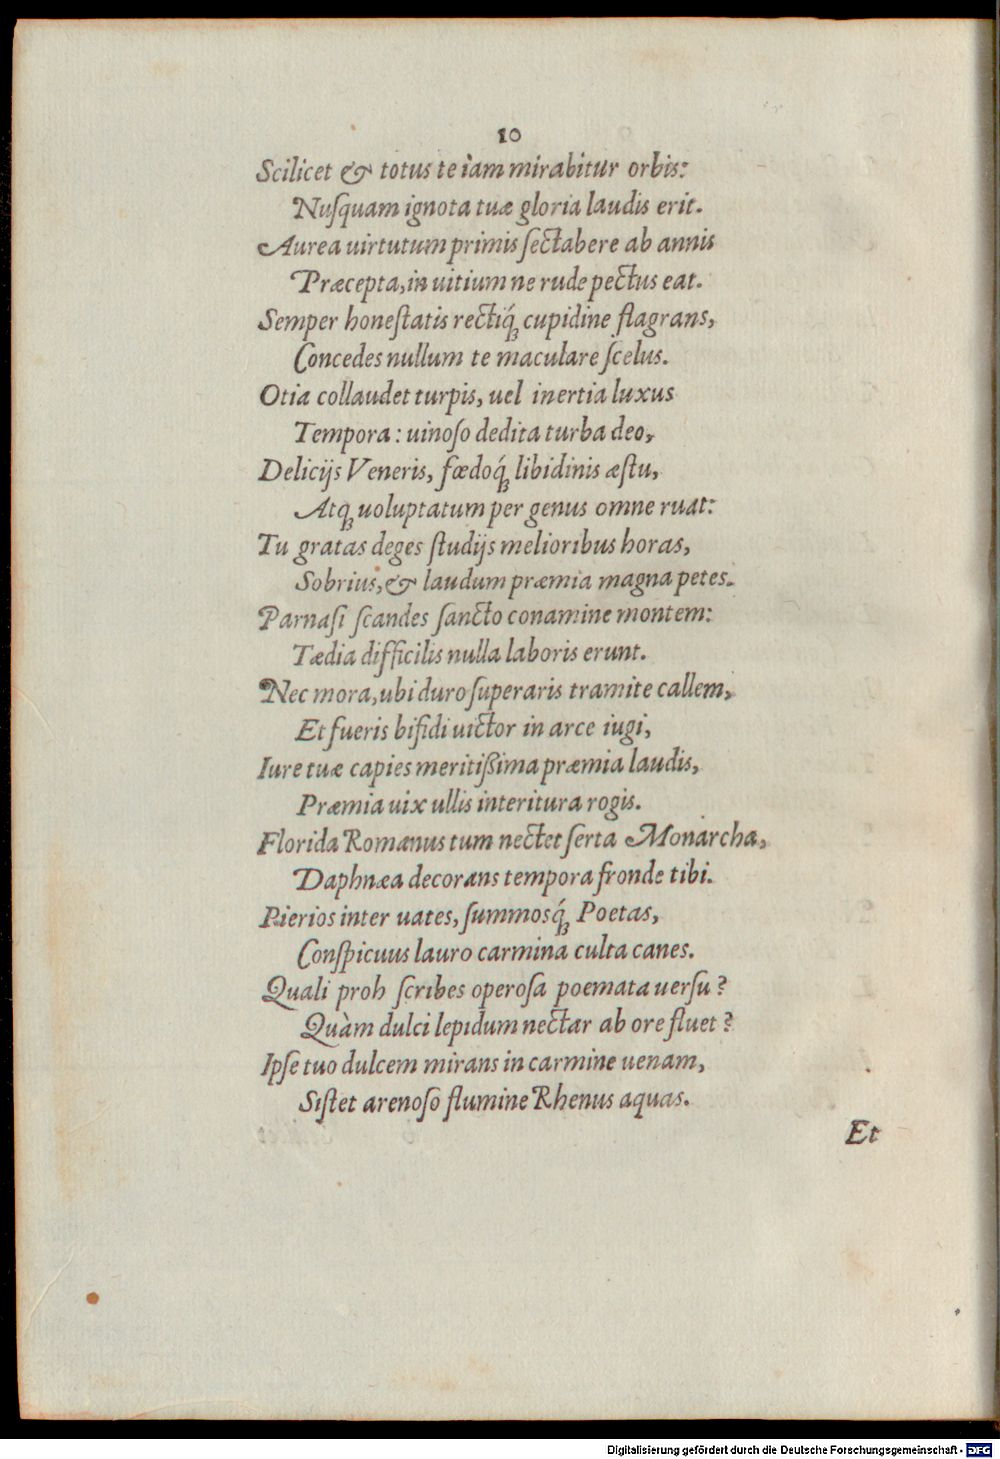 10
Scilicet & totus te iàm mirabitur orbis:
Nuſquam ignota tuæ gloria laudis erit.
Aurea uirtutum primis ſectabere ab annis
Præcepta, in uitium ne rude pectus eat.
Semper honeſtatis rectiq́ꝫ cupidine flagrans,
Concedes nullum te maculare ſcelus.
Otia collaudet turpis, uel inertia luxus
Tempora: uinoſo dedita turba deo,
Delicijs Veneris, fœdoq́ꝫ libidinis æſtu,
Atqꝫ uoluptatum per genus omne ruat:
Tu gratas deges ſtudijs melioribus horas,
Sobrius, & laudum præmia magna petes.
Parnaſi ſcandes ſancto conamine montem:
Tædia difficilis nulla laboris erunt.
Nec mora, ubi duro ſuperaris tramite callem,
Et fueris bifidi uictor in arce iugi,
Iure tuæ capies meritißima præmia laudis,
Præmia uix ullis interitura rogis.
Florida Romanus tum nectet ſerta Monarcha,
Daphnæa decorans tempora fronde tibi.
Pierios inter uates, ſummosq́ꝫ Poetas,
Conſpicuus lauro carmina culta canes.
Quali proh ſcribes operoſa poemata uerſu?
Quàm dulci lepidum nectar ab ore fluet?
Ipſe tuo dulcem mirans in carmine uenam,
Siſtet arenoſo flumine Rhenus aquas.
Et
Digitalisierung gefördert durch die Deutsche Forschungsgemeinschaft - DFG